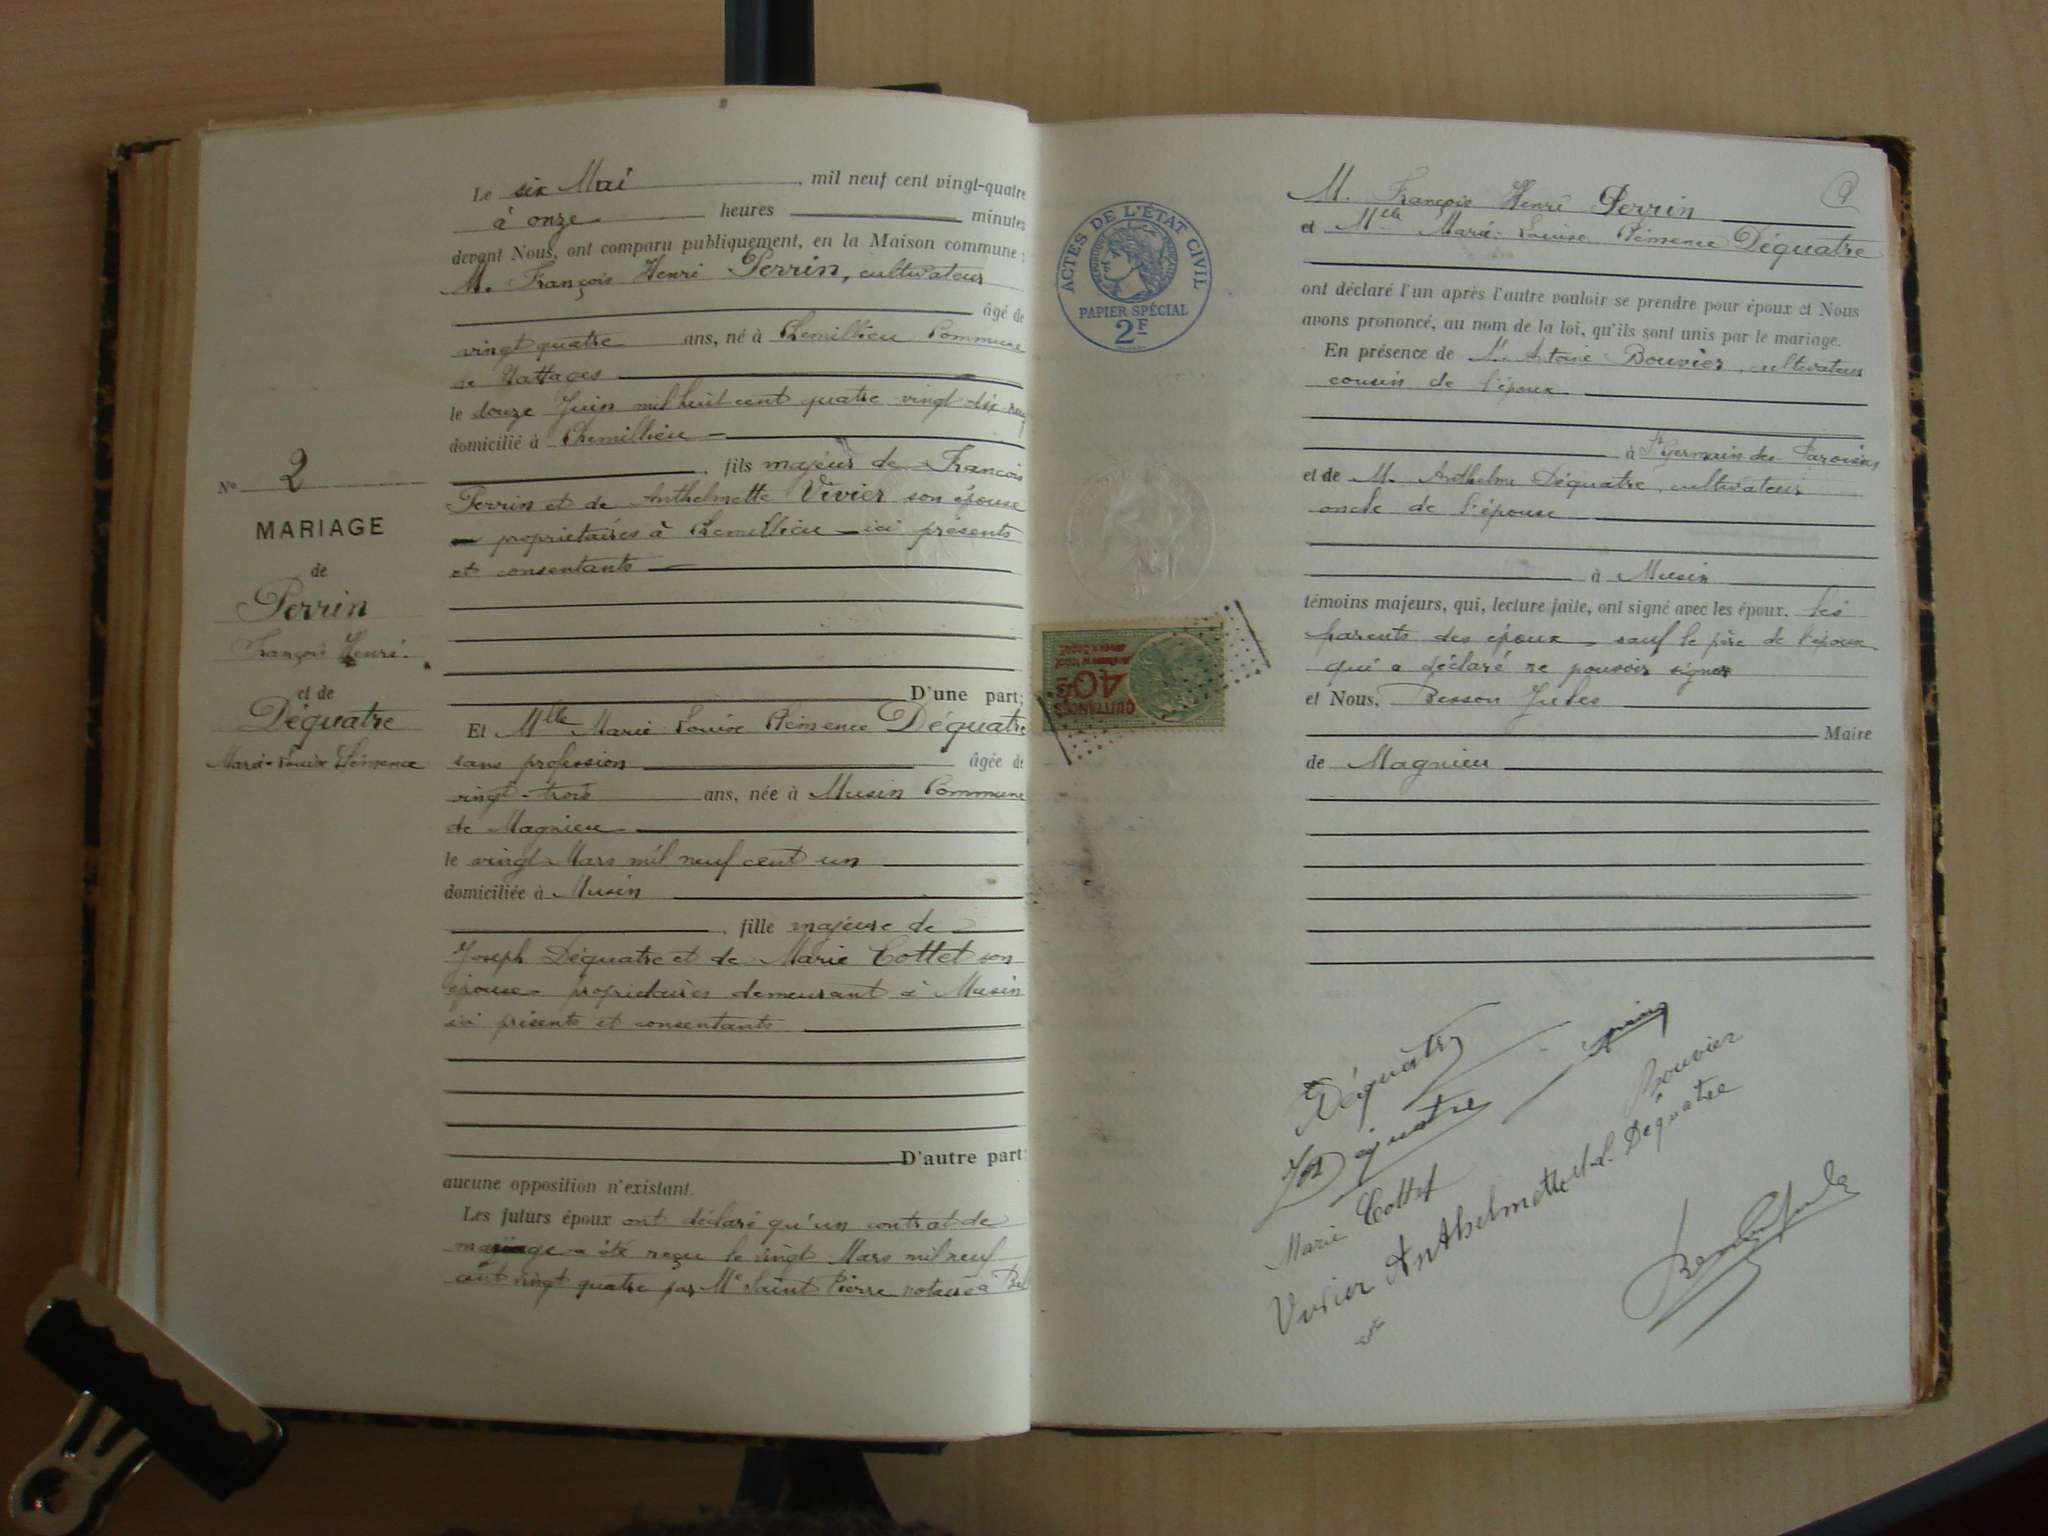 Le six Mai, mil neuf cent vingt-quatre
à onze heures minutes
devant Nous, ont comparu publiquement, en la Maison commune :
M. François Henri Perrin, cultivateur
âgé de
vingt quatre ans, né à Chemillieu Commune
de Nattages
le douze Juin mil huit cent quatre vingt dix neuf
domicilié à Chemillieu
, fils majeur de François
Perrin et de Anthelmette Vivier son épouse
propriétaires à Chemillieu ici présents
et consentants
D'une part;
Et Mlle Marie Louise Clémence Déquatre
sans profession âgée de
vingt-trois ans, née à Musin Commune
de Magnieu
le vingt Mars mil neuf cent un
domiciliée à Musin
, fille majeure de
Joseph Déquatre et de Marie Cottet son
épouse propriétaires demeurant à Musin
ici présents et consentants
D'autre part:
aucune opposition n'existant.
Les futurs époux ont déclaré qu'un contrat de
mariage a été reçu le vingt Mars mil neuf
cent vingt quatre par Me Saint Pierre notaire à Bel
N° 2
MARIAGE
de
Perrin
François Henri.
et de
Déquatre
Marie-Louise Clémence
ACTES DE L'ÉTAT CIVIL
RÉPUBLIQUE FRANÇAISE
PAPIER SPÉCIAL
2F
QUITTANCES
40c
M. François Henri Perrin
et Mlle Marie-Louise Clémence Déquatre
ont déclaré l'un après l'autre vouloir se prendre pour époux et Nous
avons prononcé, au nom de la loi, qu'ils sont unis par le mariage.
En présence de M. Antoine Bouvier, cultivateur
cousin de l'époux
à St Germain les Paroisses
et de M. Anthelme Déquatre, cultivateur
oncle de l'épouse
à Musin
témoins majeurs, qui, lecture faite, ont signé avec les époux. les
parents des époux sauf le père de l'époux
qui a déclaré ne pouvoir signer
et Nous, Besson Jules
Maire
de Magnieu
Déquatre
Jos Déquatre
Bouvier
Marie Cottet
Déquatre
Vivier Anthelmette
Besson Jules